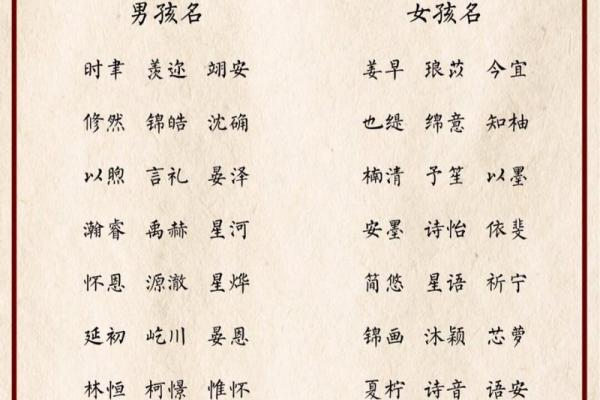 男孩名 女孩名
时聿 羡迩 翊安 姜早 琅苡 今宜
修然 锦皓 沈确 也缇 绵意 知柚
以煦 言礼 晏泽 楠清 予笙 以墨
瀚睿 禹赫 星河 安墨 诗怡 依斐
怀恩 源澈 星烨 简悠 星语 祈宁
延初 屹川 晏恩 锦画 沐颖 芯萝
林恒 柯憬 惟怀 夏柠 诗音 语安